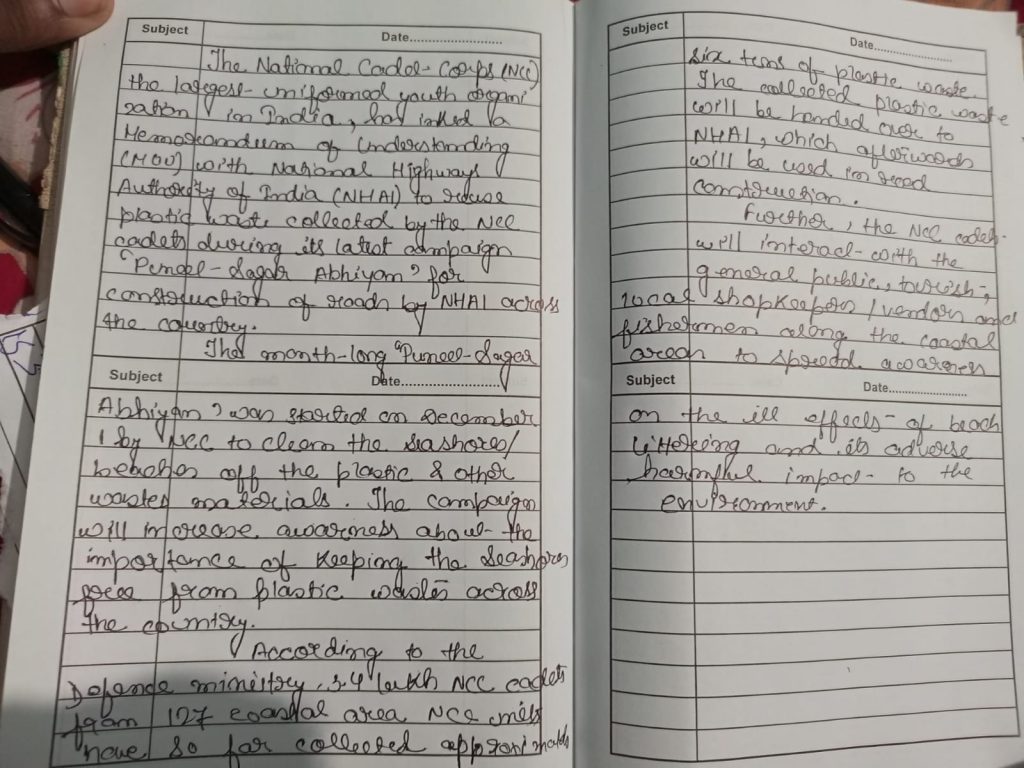 Subject Date..........................
The National Cadet Corps (NCC)
the largest uniformed youth organi
zation in India, has inked a
Memorandum of Understanding
(MOU) with National Highways
Authority of India (NHAI) to reuse
plastic waste collected by the NCC
cadets during its latest campaign
"Puneet Sagar Abhiyan" for
construction of roads by NHAI across
the country.
The month-long "Puneet Sagar
Subject Date..........................
Abhiyan" was started on December
1 by NCC to clean the seashores/
beaches off the plastic & other
wastes materials. The campaign
will increase awariness about the
importance of keeping the seashores
free from plastic wastes across
the country.
According to the
Defence ministry, 3.4 lakh NCC cadets
from 127 coastal area NCC units
have so far collected approximately
Subject Date......................
six tons of plastic waste
The collected plastic waste
will be handed over to
NHAI, which afterwards
will be used in road
construction.
Further, the NCC cadets
will interact with the
general public, tourist,
local shopkeepers / vendors and
fishermen along the coastal
areas to spread awareness
Subject Date..........................
on the ill effects of beach
littering and its adverse
harmful impact to the
environment.